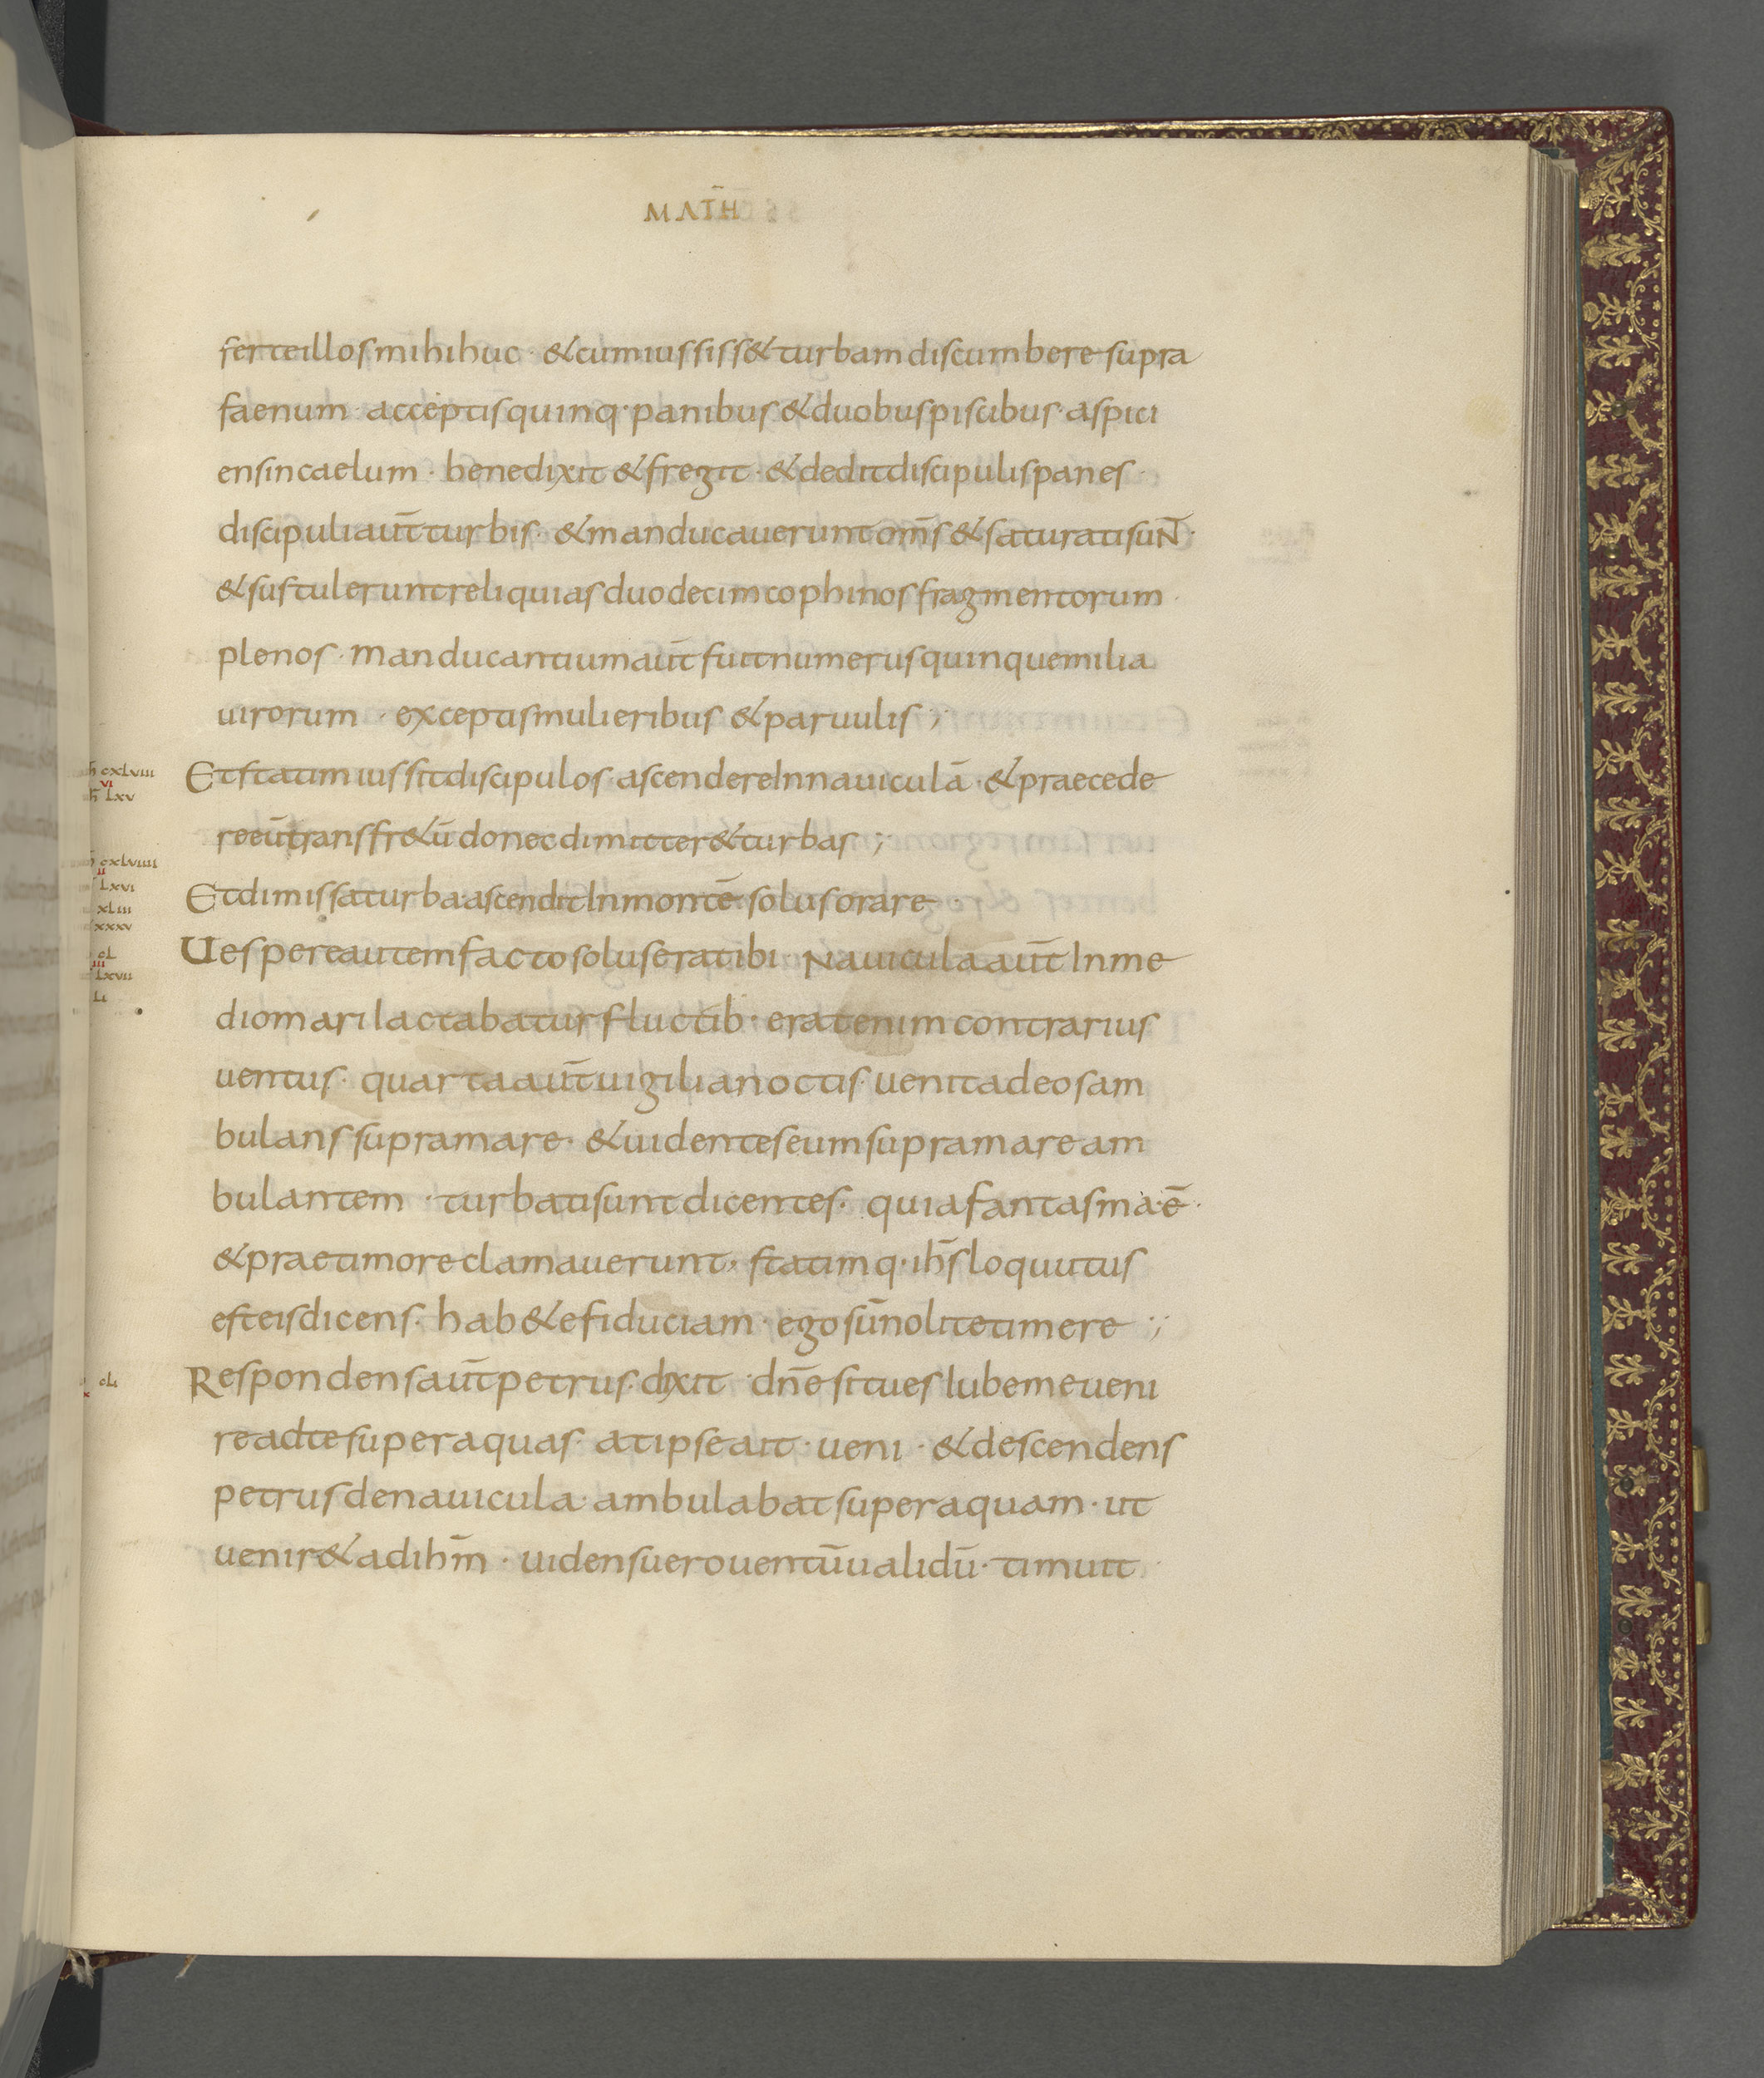 MATH
ferteillosmihihuc · &cumiussiss&turbamdiscumbere supra
faenum · acceptisquinq· panibus&duobuspiscibus · aspici
ensincaelum · benedixit &fregit · &deditdiscipulispanes ·
discipuliaut̄turbis · &manducaueruntom̄s &saturatisun̄t ·
&sustuleruntreliquiasduodecimcophinosfragmentorum ·
plenos · manducantiumaut̄fuitnumerusquinquemilia
uirorum · exceptismulieribus &paruulis ;
cxlviii
vi
lxv
Etstatimiussitdiscipulos · ascendereInnauiculā · &praecede
reeūtransfr&ū donecdimitter&turbas ;
cxlviiii
ii
lxvi
xliii
xxxv
EtdimissaturbaascenditInmontē solusorare ·
cl
iii
lxvii
li
Uespereautemfactosoluseratibi · Nauiculaaut̄Inme
diomariIactabaturfluctib· eratenimcontrarius
uentus · quartaaut̄uigilianoctis · uenitadeosam
bulanssupramare · &uidenteseumsupramaream
bulantem · turbatisuntdicentes · quiafantasma·ē ·
&praetimoreclamauerunt · statimq· ih̄sloquutus
esteisdicens · hab&efiduciam · egosūnolitetimere ;
cli
x
Respondensaut̄petrus · dixit · dn̄esituesIubemeueni
readtesuperaquas · atipseait · ueni · &descendens
petrusdenauicula · ambulabatsuperaquam · ut
uenir&adih̄m · uidensuerouentūualidū · timuit ·